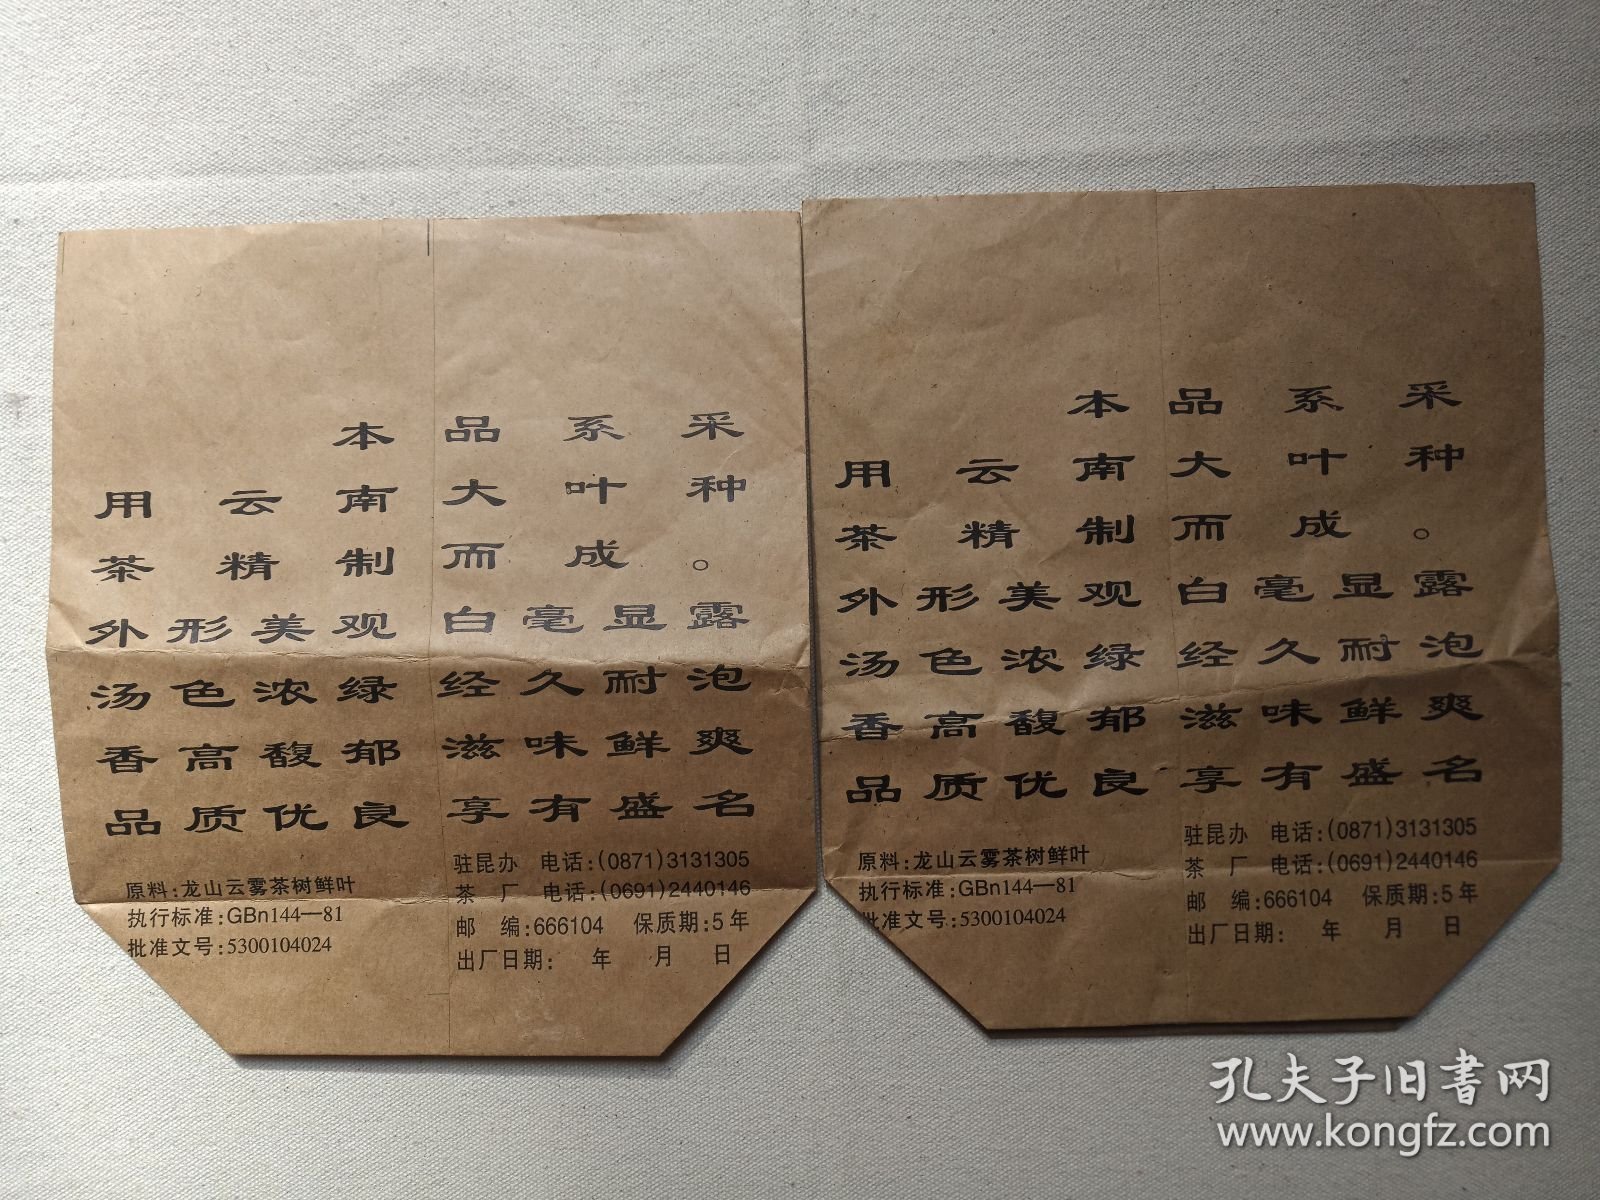 本品系采
用云南大叶种
茶精制而成。
外形美观 白毫显露
汤色浓绿 经久耐泡
香高馥郁 滋味鲜爽
品质优良 享有盛名
原料:龙山云雾茶树鲜叶
执行标准:GBn144—81
批准文号:5300104024
驻昆办 电话:(0871)3131305
茶 厂 电话:(0691)2440146
邮 编:666104 保质期:5年
出厂日期: 年 月 日
本品系采
用云南大叶种
茶精制而成。
外形美观 白毫显露
汤色浓绿 经久耐泡
香高馥郁 滋味鲜爽
品质优良 享有盛名
原料:龙山云雾茶树鲜叶
执行标准:GBn144—81
批准文号:5300104024
驻昆办 电话:(0871)3131305
茶 厂 电话:(0691)2440146
邮 编:666104 保质期:5年
出厂日期: 年 月 日
孔夫子旧书网
www.kongfz.com